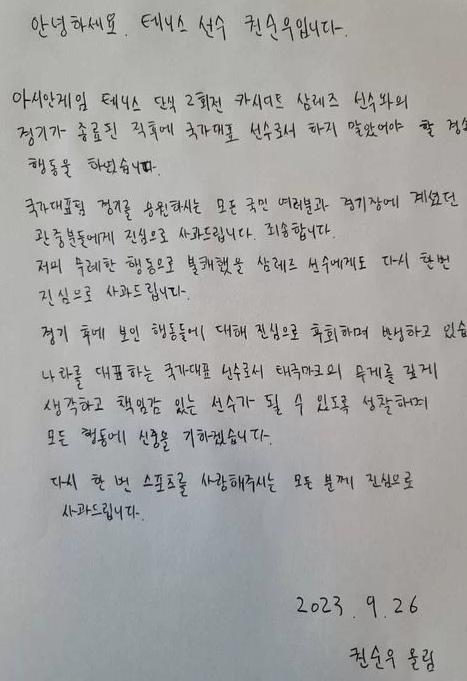 안녕하세요. 테니스 선수 권순우입니다.
아시안게임 테니스 단식 2회전 카시디트 삼레즈 선수와의
경기가 종료된 직후에 국가대표 선수로서 하지 말았어야 할 경솔
행동을 하였습니다.
국가대표팀 경기를 응원하시는 모든 국민 여러분과 경기장에 계셨던
관중분들에게 진심으로 사과드립니다. 죄송합니다.
저의 무례한 행동으로 불쾌했을 삼레즈 선수에게도 다시 한번
진심으로 사과드립니다.
경기 후에 보인 행동들에 대해 진심으로 후회하며 반성하고 있습
나라를 대표하는 국가대표 선수로서 태극마크의 무게를 깊게
생각하고 책임감 있는 선수가 될 수 있도록 성찰하며
모든 행동에 신중을 기하겠습니다.
다시 한 번 스포츠를 사랑해주시는 모든 분께 진심으로
사과드립니다.
2023. 9. 26
권순우 올림